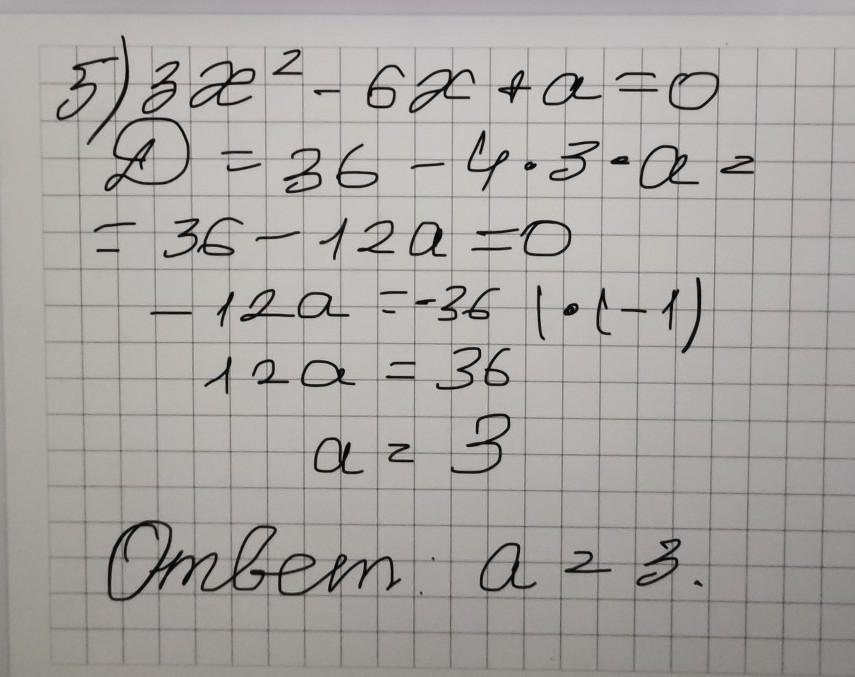 5) 3x² - 6x + a = 0
D = 36 - 4·3·a =
= 36 - 12a = 0
-12a = -36 | · (-1)
12a = 36
a = 3
Ответ: a = 3.